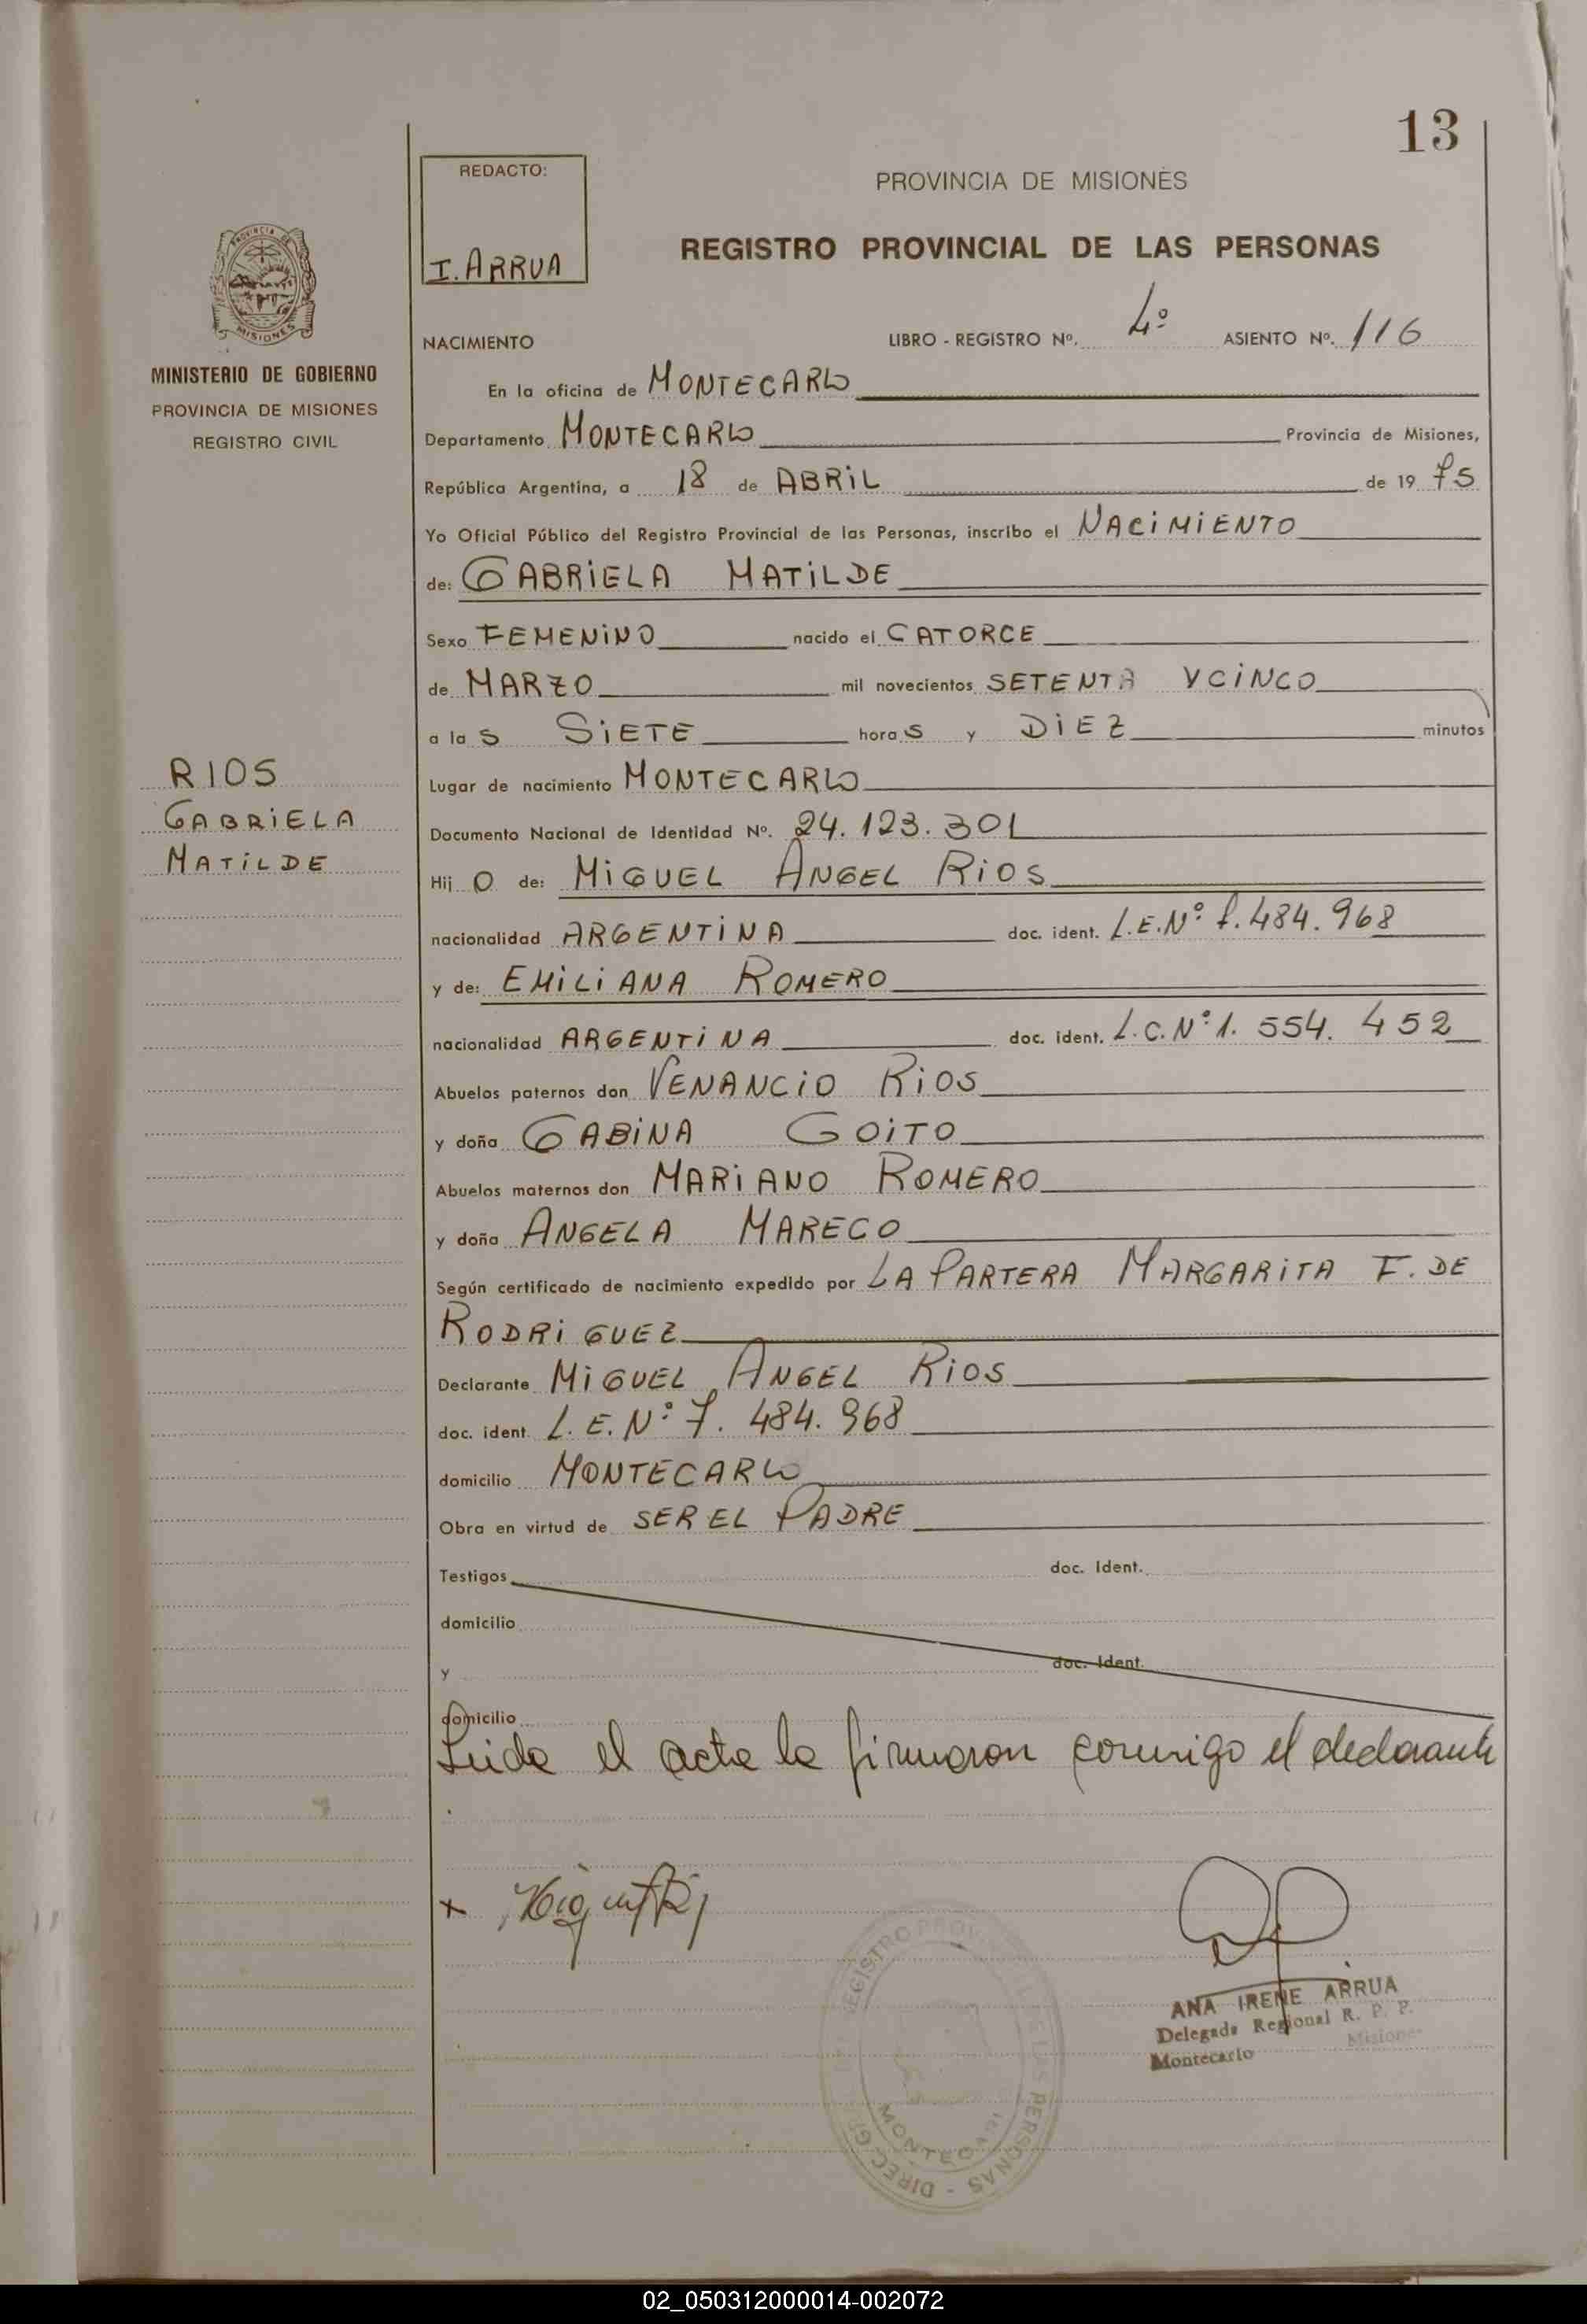 13
REDACTO:
I. ARRUA
PROVINCIA DE MISIONES
REGISTRO PROVINCIAL DE LAS PERSONAS
PROVINCIA DE
MISIONES
MINISTERIO DE GOBIERNO
PROVINCIA DE MISIONES
REGISTRO CIVIL
NACIMIENTO LIBRO - REGISTRO Nº. 4º ASIENTO Nº. 116
En la oficina de MONTECARLO
Departamento MONTECARLO Provincia de Misiones,
República Argentina, a 18 de ABRIL de 19 75
Yo Oficial Público del Registro Provincial de las Personas, inscribo el NACIMIENTO
de: GABRIELA MATILDE
Sexo FEMENINO nacido el CATORCE
de MARZO mil novecientos SETENTA Y CINCO
a la S SIETE hora S y DIEZ minutos
RIOS
GABRIELA
MATILDE
Lugar de nacimiento MONTECARLO
Documento Nacional de Identidad Nº. 24.123.301
Hij O de: MIGUEL ANGEL RIOS
nacionalidad ARGENTINA doc. ident. L.E.Nº 7.484.968
y de: EMILIANA ROMERO
nacionalidad ARGENTINA doc. ident. L.C.Nº 1.554.452
Abuelos paternos don VENANCIO RIOS
y doña GABINA GOITO
Abuelos maternos don MARIANO ROMERO
y doña ANGELA MARECO
Según certificado de nacimiento expedido por LA PARTERA MARGARITA F. DE
RODRIGUEZ
Declarante MIGUEL ANGEL RIOS
doc. ident. L.E.Nº 7.484.968
domicilio MONTECARLO
Obra en virtud de SER EL PADRE
Testigos doc. Ident.
domicilio
y doc. Ident.
domicilio
Leida el acta la firmaron conmigo el declarante
ANA IRENE ARRUA
Delegada Regional R. P. P.
Montecarlo Misiones
REGISTRO PROV LAS PERSONAS - DIREC
MONTECARL
02_050312000014-002072